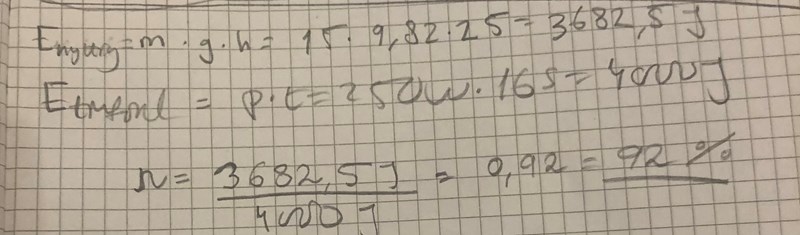 Enyttig = m · g · h = 15 · 9,82 · 25 = 3682,5 J
Etillförd = P · t = 250W · 16s = 4000J
n = 3682,5 J / 4000 J = 0,92 = 92 %